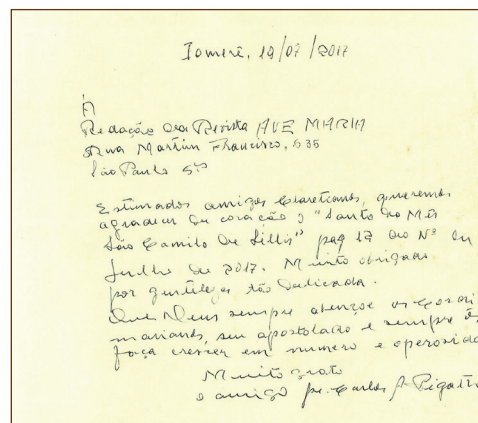 Iomerê, 19/07/2017
À
Redação da Revista AVE MARIA
Rua Martim Francisco, 636
São Paulo SP
Estimados amigos Claretianos, queremos
agradecer de coração o "Santo do Mês
São Camilo De Lellis" pag 12 do Nº de
Julho de 2017. Muito obrigado
por gentileza tão delicada.
Que Deus sempre abençoe os
marianos, seu apostolado e sempre
faça crescer em numero e
Muito grato
o amigo pe. Carlos